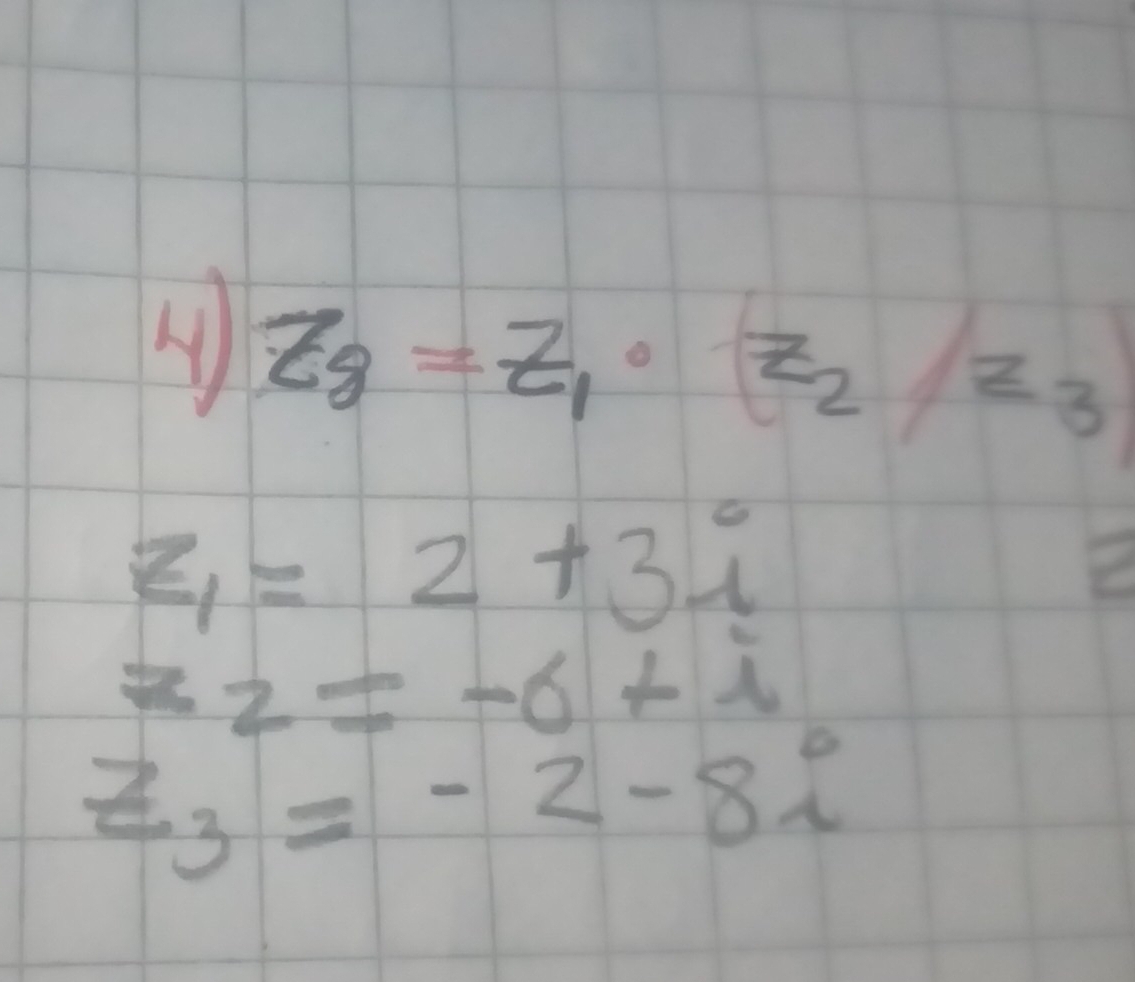 4) z₈ = z₁ · (z₂ / z₃)
z₁ = 2 + 3i
z₂ = -6 + i
z₃ = - 2 - 8i